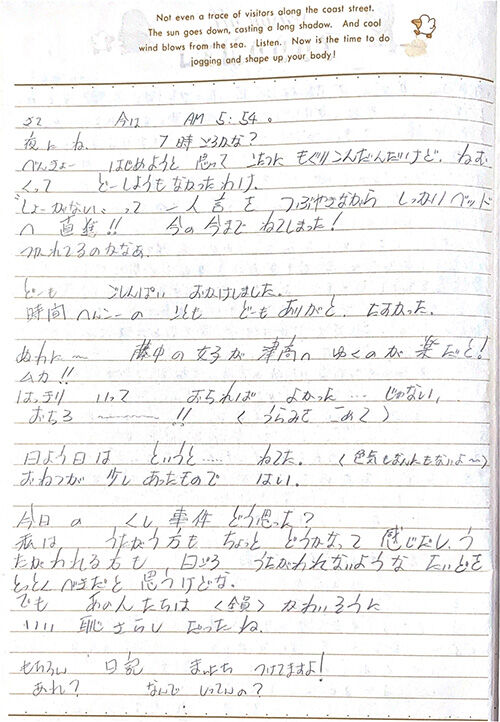 Not even a trace of visitors along the coast street.
The sun goes down, casting a long shadow. And cool
wind blows from the sea. Listen. Now is the time to do
jogging and shape up your body!
さて 今は AM 5:54。
夜にね、 7時ごろかな?
べんきょー はじめようと 思って こたつに もぐりこんだんだけど、ねむ
くって どーしようもなかったわけ。
"しょーがない"って 一人言を つぶやきながら しっかりベッド
へ 直進!! 今の今まで ねてしまった!
つかれてるのかなあ。
どーも ごしんぱい おかけしました。
時間へんこーの ことも どーもありがと。たすかった。
ぬわに〜 藤中の女子が 津高へ ゆくのが 楽だと!
ムカ!!
はっきり いって おちれば よかった… じゃない、
おちろ 〜!! 〈うらみを こめて〉
日よう日は というと…… ねてた。〈色気もなんにもないよ〜〉
おねつが 少しあったもので はい。
今日の 事件 どう思った?
私は うたがう方も ちょっと どうかなって 感じだし、う
たがわれる方も 日ごろ うたがわれないような たいどを
とっとくべきだと 思うけどな。
でも あの人たちは 〈全員〉 かわいそうに
いい 恥さらし だったね。
もちろん 日記 まいにち つけてますよ!
あれ? なんで いってんの?